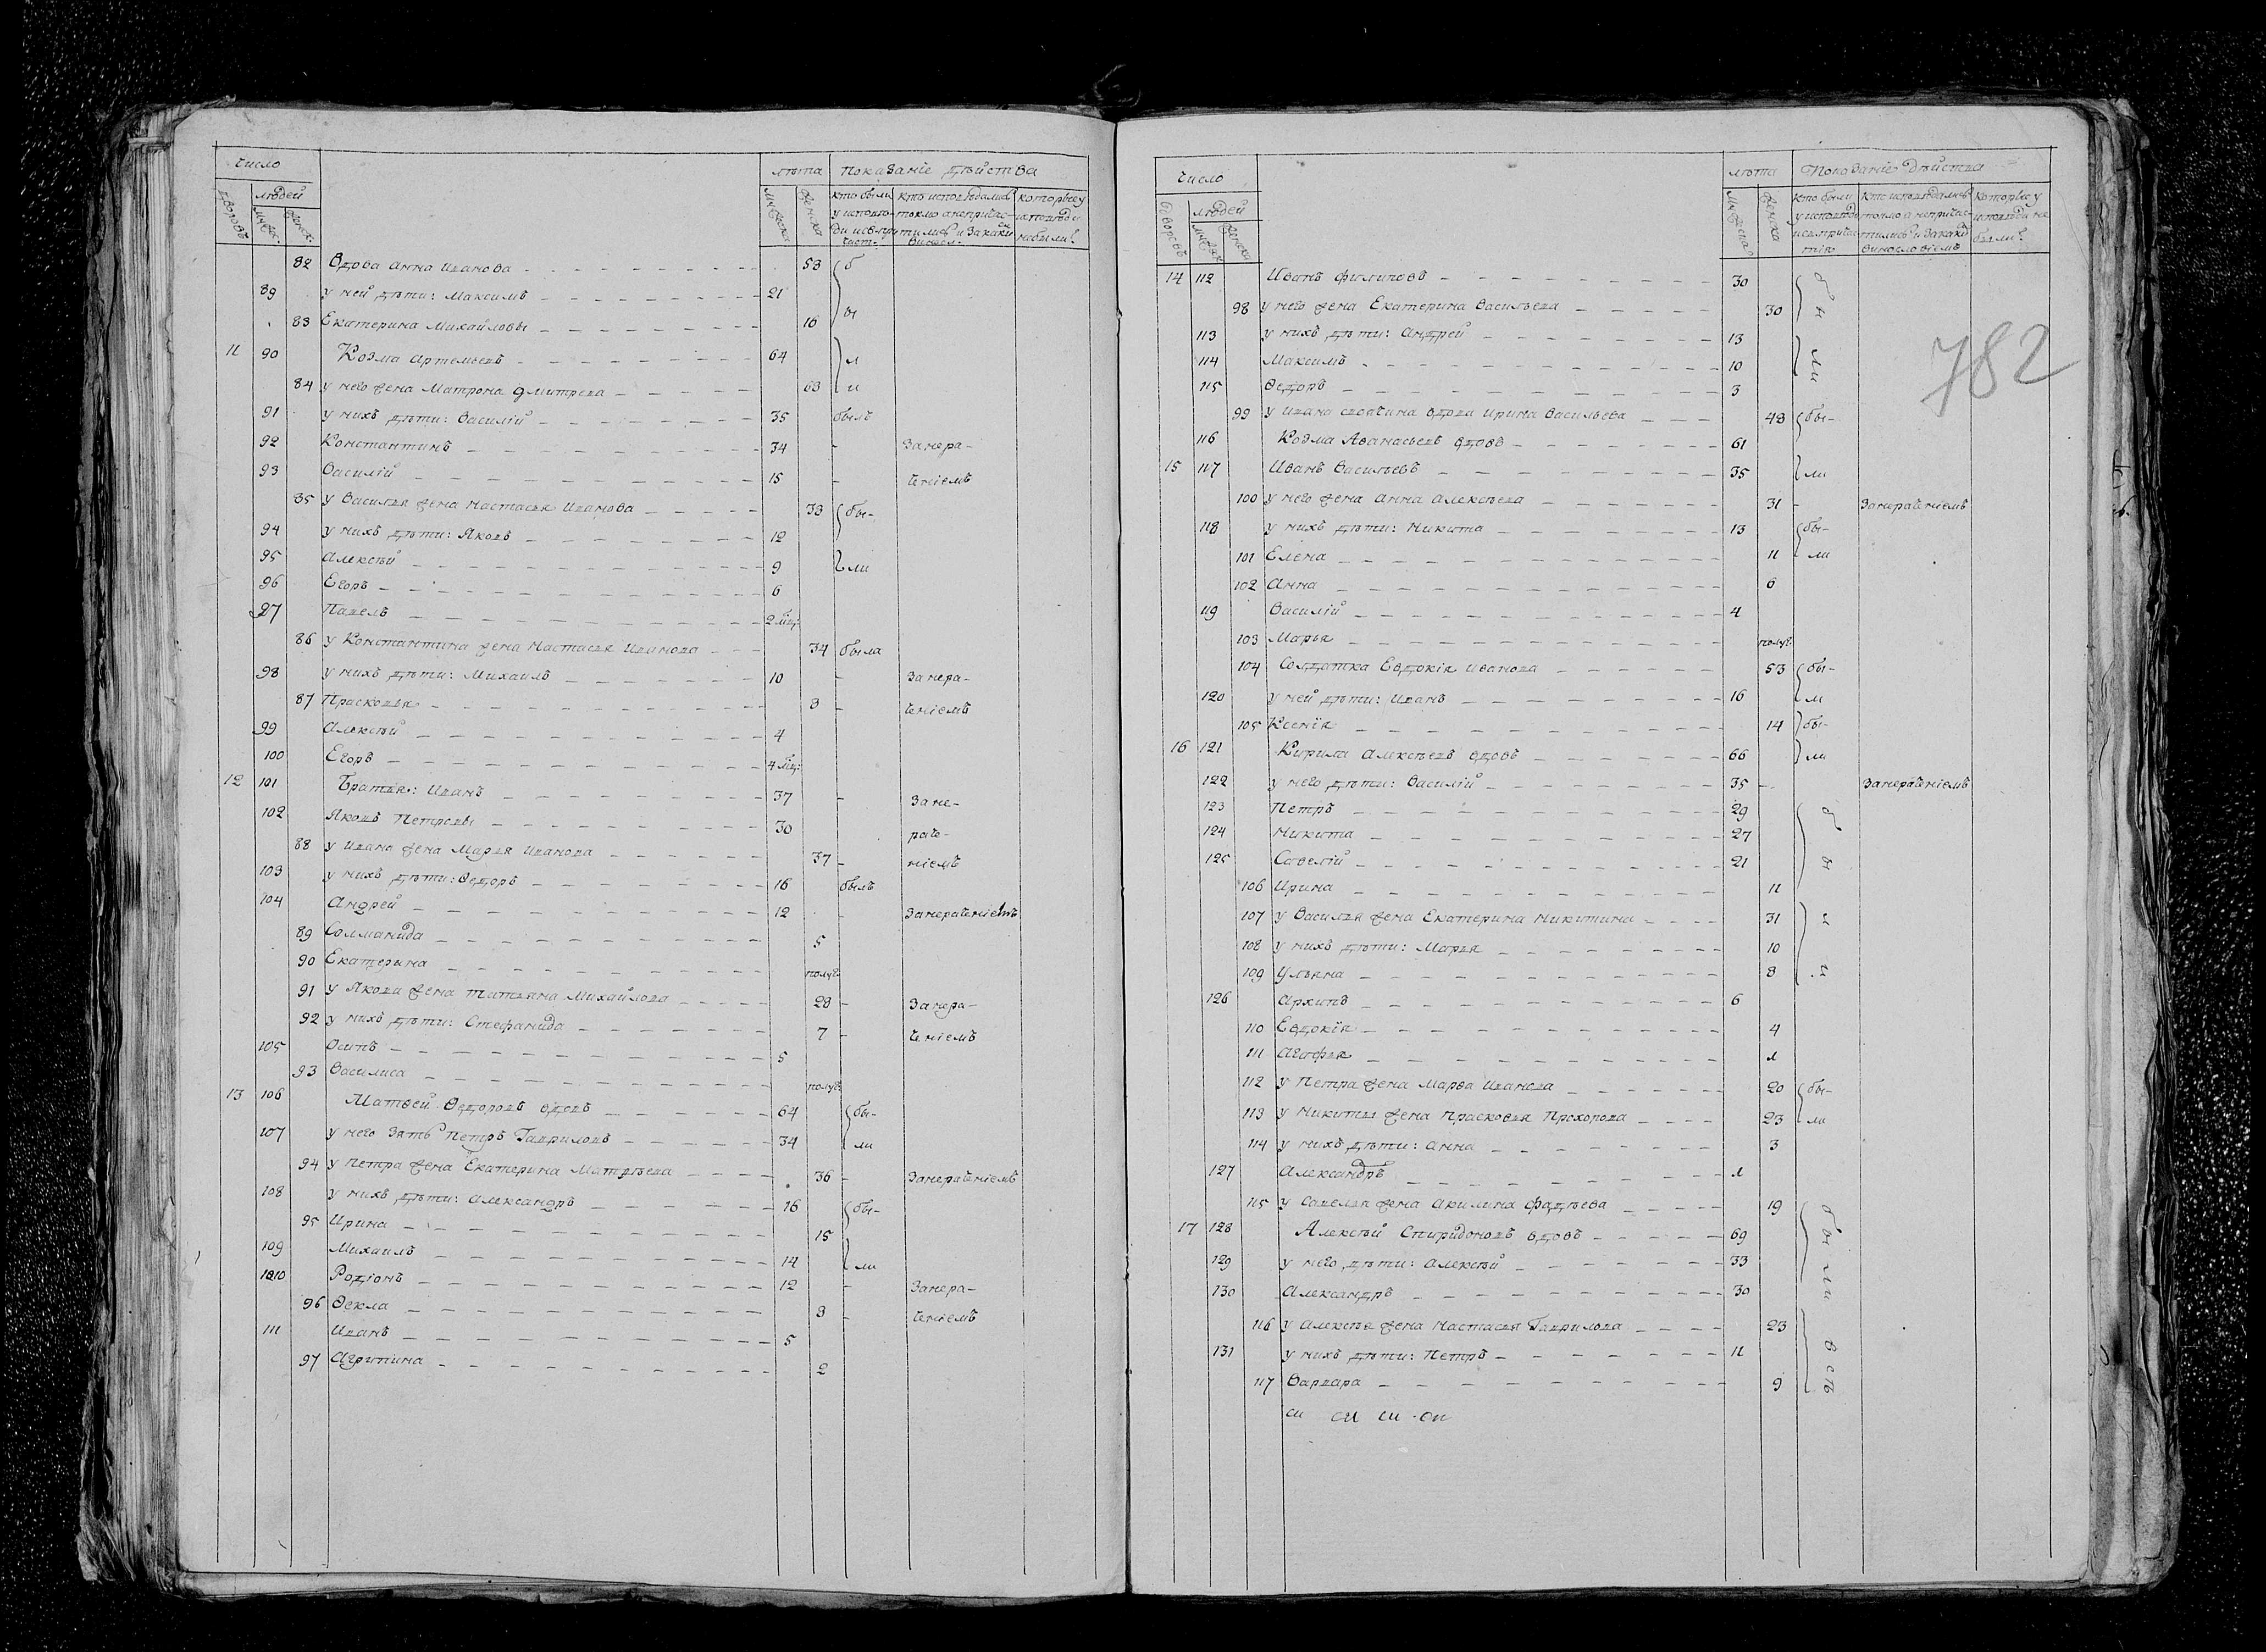 число лѣта Показанiе дѣйства
дворовъ людей мужеска женска кто были кто исповѣдались которые у
мужес. женск. у исповѣ- токмо а непричас- исповѣди
ди и св. при- тились и за каки[мъ] небыли.
част. винословiем.
82 Вдова Анна Иванова 53 б
89 у ней дѣти: Максимъ 21
83 Екатерина Михайловы 16 ы
11 90 Козма Артемьевъ 64 л
84 у него жена Матрона Дмитрева 63 и
91 у нихъ дѣти: Василiй 35 былъ
92 Константинъ 34 - Занера-
93 Василiй 15 - ченiемъ
85 у Василья жена Настасья Иванова 33 бы-
94 у нихъ дѣти: Яковъ 12
95 Алексѣй 9 ли
96 Егоръ 6
97 Павелъ 2 мц:
86 у Константина жена Настасья Иванова 34 была
98 у нихъ дѣти: Михаилъ 10 - Занера-
87 Прасковья 8 - ченiемъ
99 Алексѣй 4
100 Егоръ 4 мц:
12 101 Братья: Иванъ 37 - Зане-
102 Яковъ Петровы 30 раче-
88 у Ивана жена Марья Иванова 37 - нiемъ
103 у нихъ дѣти: Ѳедоръ 16 былъ
104 Андрей 12 - Занераченiемъ
89 Соломанида 5
90 Екатерина полуг.
91 у Якова жена Татьяна Михайлова 28 - Занера-
92 у нихъ дѣти: Стефанида 7 - ченiемъ
105 Осипъ 5
93 Василиса полуг.
13 106 Матвей Ѳедоровъ вдовъ 64 бы-
107 у него зять Петръ Гавриловъ 34 ли
94 у Петра жена Екатерина Матвѣева 36 - Занераченiемъ
108 у нихъ дѣти: Александръ 16 бы-
95 Ирина 15
109 Михаилъ 14 ли
110 Родiонъ 12 - Занера-
96 Ѳекла 8 - ченiемъ
111 Иванъ 5
97 Агрипина 2
число лѣта Показанiе дѣйства
дворовъ людей мужеска женска кто были кто исповѣдались которые у
мужеск женска у исповѣди токмо а непричас- исповѣди не
и св. прича- тились и за каки[мъ] были.
стiя винословiемъ
782
14 112 Иванъ Филиповъ 30 б
98 у него жена Екатерина Васильева 30 ы
113 у нихъ дѣти: Андрей 13
114 Максимъ 10 ли
115 Ѳедоръ 3
99 у Ивана своячина вдова Ирина Васильева 48 бы-
116 Козма Аванасьевъ вдовъ 61
15 117 Иванъ Васильевъ 35 ли
100 у него жена Анна Алексѣева 31 - Занераченiемъ
118 у нихъ дѣти: Никита 13 бы-
101 Елена 11 ли
102 Анна 6
119 Василiй 4
103 Марья полуг.
104 Солдатка Евдокiя Иванова 53 бы-
120 у ней дѣти: Иванъ 16 л
105 Ксенiя 14 бы-
16 121 Кирила Алексѣевъ вдовъ 66 ли
122 у него дѣти: Василiй 35 - Занераченiемъ
123 Петръ 29 б
124 Никита 27
125 Савелiй 21 ы
106 Ирина 11
107 у Василья жена Екатерина Никитина 31 л
108 у нихъ дѣти: Марья 10
109 Ульяна 8 и
126 Архипъ 6
110 Евдокiя 4
111 Агафья 1
112 у Петра жена Марѳа Иванова 20 бы-
113 у Никиты жена Прасковья Прохорова 23 ли
114 у нихъ дѣти: Анна 3
127 Александръ 1
115 у Савелья жена Акилина Фадѣева 19 б
17 128 Алексѣй Спиридоновъ вдовъ 69 ы
129 у него дѣти: Алексѣй 33 л
130 Александръ 30 и
116 у Алексѣя жена Настасья Гаврилова 23
131 у нихъ дѣти: Петръ 11 в с
117 Варвара 9 ѣ